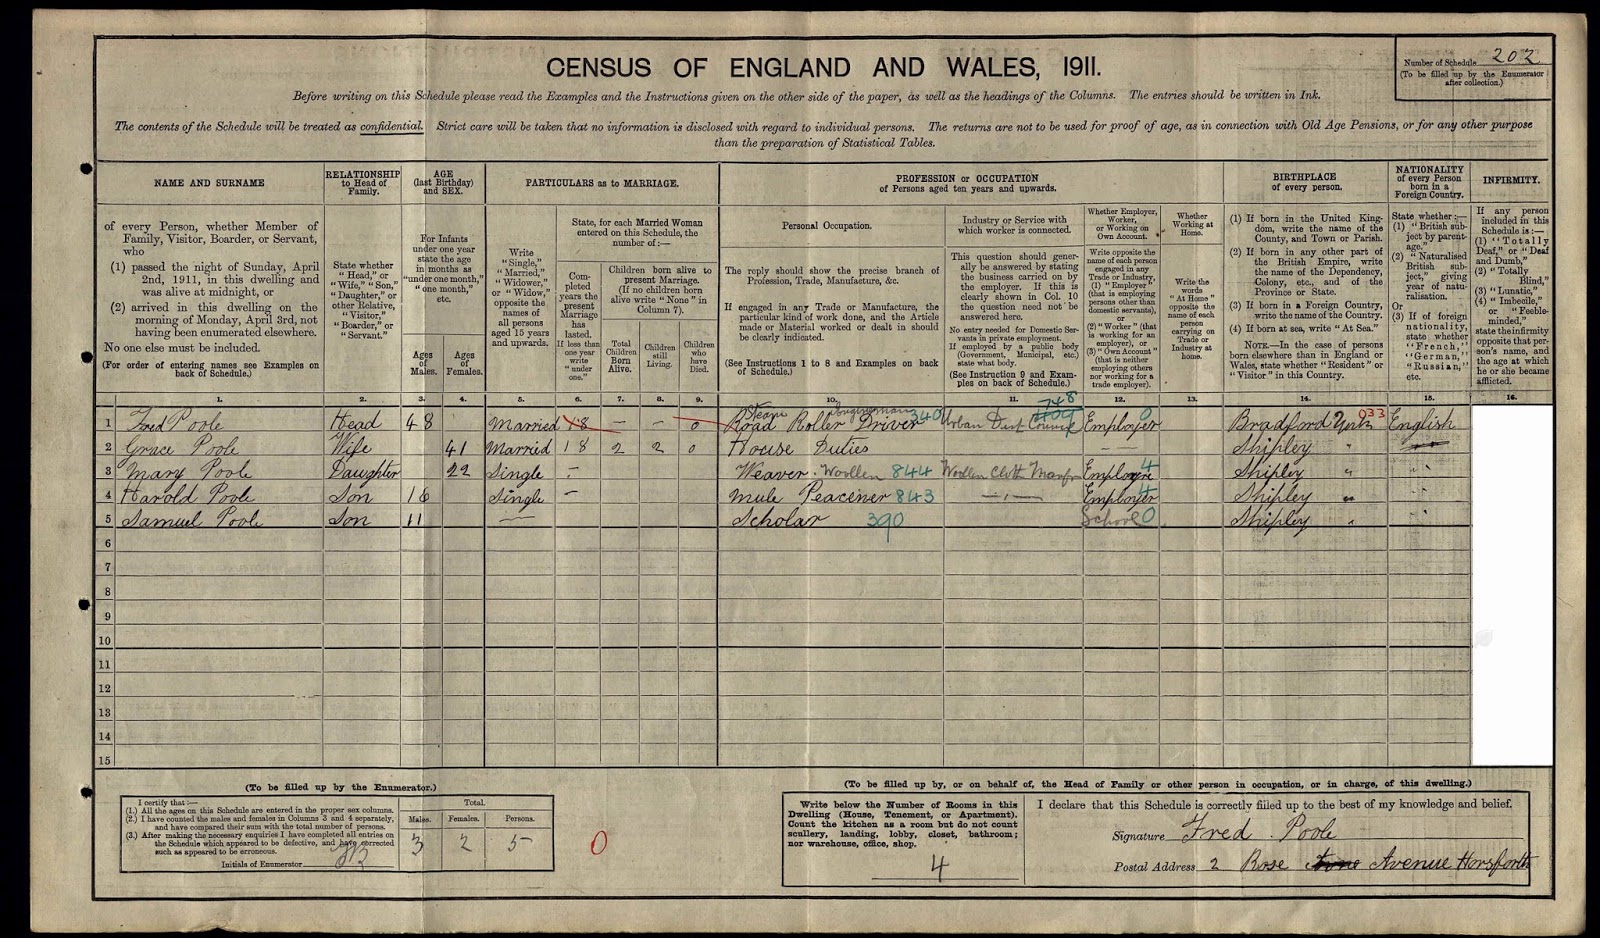 CENSUS OF ENGLAND AND WALES, 1911.
Number of Schedule 202
(To be filled up by the Enumerator
after collection.)
Before writing on this Schedule please read the Examples and the Instructions given on the other side of the paper, as well as the headings of the Columns. The entries should be written in Ink.
The contents of the Schedule will be treated as confidential. Strict care will be taken that no information is disclosed with regard to individual persons. The returns are not to be used for proof of age, as in connection with Old Age Pensions, or for any other purpose
than the preparation of Statistical Tables.
NAME AND SURNAME
of every Person, whether Member of
Family, Visitor, Boarder, or Servant,
who
(1) passed the night of Sunday, April
2nd, 1911, in this dwelling and
was alive at midnight, or
(2) arrived in this dwelling on the
morning of Monday, April 3rd, not
having been enumerated elsewhere.
No one else must be included.
(For order of entering names see Examples on
back of Schedule.)
RELATIONSHIP
to Head of
Family.
State whether
"Head," or
"Wife," "Son,"
"Daughter," or
other Relative,
"Visitor,"
"Boarder," or
"Servant."
AGE
(last Birthday)
and SEX.
For Infants
under one year
state the age
in months as
"under one month,"
"one month,"
etc.
Ages
of
Males.
Ages
of
Females.
PARTICULARS as to MARRIAGE.
Write
"Single,"
"Married,"
"Widower,"
or "Widow,"
opposite the
names of
all persons
aged 15 years
and upwards.
State, for each Married Woman
entered on this Schedule, the
number of:—
Com-
pleted
years the
present
Marriage
has
lasted.
If less than
one year
write
"under
one."
Children born alive to
present Marriage.
(If no children born
alive write "None" in
Column 7).
Total
Children
Born
Alive.
Children
still
Living.
Children
who
have
Died.
PROFESSION or OCCUPATION
of Persons aged ten years and upwards.
Personal Occupation.
The reply should show the precise branch of
Profession, Trade, Manufacture, &c.
If engaged in any Trade or Manufacture, the
particular kind of work done, and the Article
made or Material worked or dealt in should
be clearly indicated.
(See Instructions 1 to 8 and Examples on back
of Schedule.)
Industry or Service with
which worker is connected.
This question should gener-
ally be answered by stating
the business carried on by
the employer. If this is
clearly shown in Col. 10
the question need not be
answered here.
No entry needed for Domestic Ser-
vants in private employment.
If employed by a public body
(Government, Municipal, etc.)
state what body.
(See Instruction 9 and Exam-
ples on back of Schedule.)
Whether Employer,
Worker,
or Working on
Own Account.
Write opposite the
name of each person
engaged in any
Trade or Industry,
(1) "Employer"
(that is employing
persons other than
domestic servants),
or
(2) "Worker" (that
is working for an
employer), or
(3) "Own Account"
(that is neither
employing others
nor working for a
trade employer).
Whether
Working at
Home.
Write the
words
"At Home"
opposite the
name of each
person
carrying on
Trade or
Industry at
home.
BIRTHPLACE
of every person.
(1) If born in the United King-
dom, write the name of the
County, and Town or Parish.
(2) If born in any other part of
the British Empire, write
the name of the Dependency,
Colony, etc., and of the
Province or State.
(3) If born in a Foreign Country,
write the name of the Country.
(4) If born at sea, write "At Sea."
NOTE.—In the case of persons
born elsewhere than in England or
Wales, state whether "Resident" or
"Visitor" in this Country.
NATIONALITY
of every Person
born in a
Foreign Country.
State whether:—
(1) "British sub-
ject by parent-
age,"
(2) "Naturalised
British sub-
ject," giving
year of natu-
ralisation.
Or
(3) If of foreign
nationality,
state whether
"French,"
"German,"
"Russian,"
etc.
INFIRMITY.
If any person
included in this
Schedule is:—
(1) "Totally
Deaf," or "Deaf
and Dumb,"
(2) "Totally
Blind,"
(3) "Lunatic,"
(4) "Imbecile,"
or "Feeble-
minded,"
state the infirmity
opposite that per-
son's name, and
the age at which
he or she became
afflicted.
1. 2. 3. 4. 5. 6. 7. 8. 9. 10. 11. 12. 13. 14. 15. 16.
1 Fred Poole Head 48 Married 18 – – 0 Steam Road Roller Driver Engineman 340 Urban Dist Council 748 Employer 0 Bradford Yorks 033 English
2 Grace Poole Wife 41 Married 18 2 2 0 House Duties — — Shipley "
3 Mary Poole Daughter 22 Single – Weaver. Woollen 844 Woollen Cloth Manfr 4 Shipley "
4 Harold Poole Son 16 Single – Mule Peacener 843 —"— 4 Shipley "
5 Samuel Poole Son 11 — Scholar 390 School 0 Shipley "
6
7
8
9
10
11
12
13
14
15
(To be filled up by the Enumerator.)
I certify that:—
(1.) All the ages on this Schedule are entered in the proper sex columns.
(2.) I have counted the males and females in Columns 3 and 4 separately,
and have compared their sum with the total number of persons.
(3.) After making the necessary enquiries I have completed all entries on
the Schedule which appeared to be defective, and have corrected
such as appeared to be erroneous.
Initials of Enumerator
Total.
Males. Females. Persons.
3 2 5
0
(To be filled up by, or on behalf of, the Head of Family or other person in occupation, or in charge, of this dwelling.)
Write below the Number of Rooms in this
Dwelling (House, Tenement, or Apartment).
Count the kitchen as a room but do not count
scullery, landing, lobby, closet, bathroom;
nor warehouse, office, shop.
4
I declare that this Schedule is correctly filled up to the best of my knowledge and belief.
Signature Fred Poole
Postal Address 2 Rose Avenue Horsforth